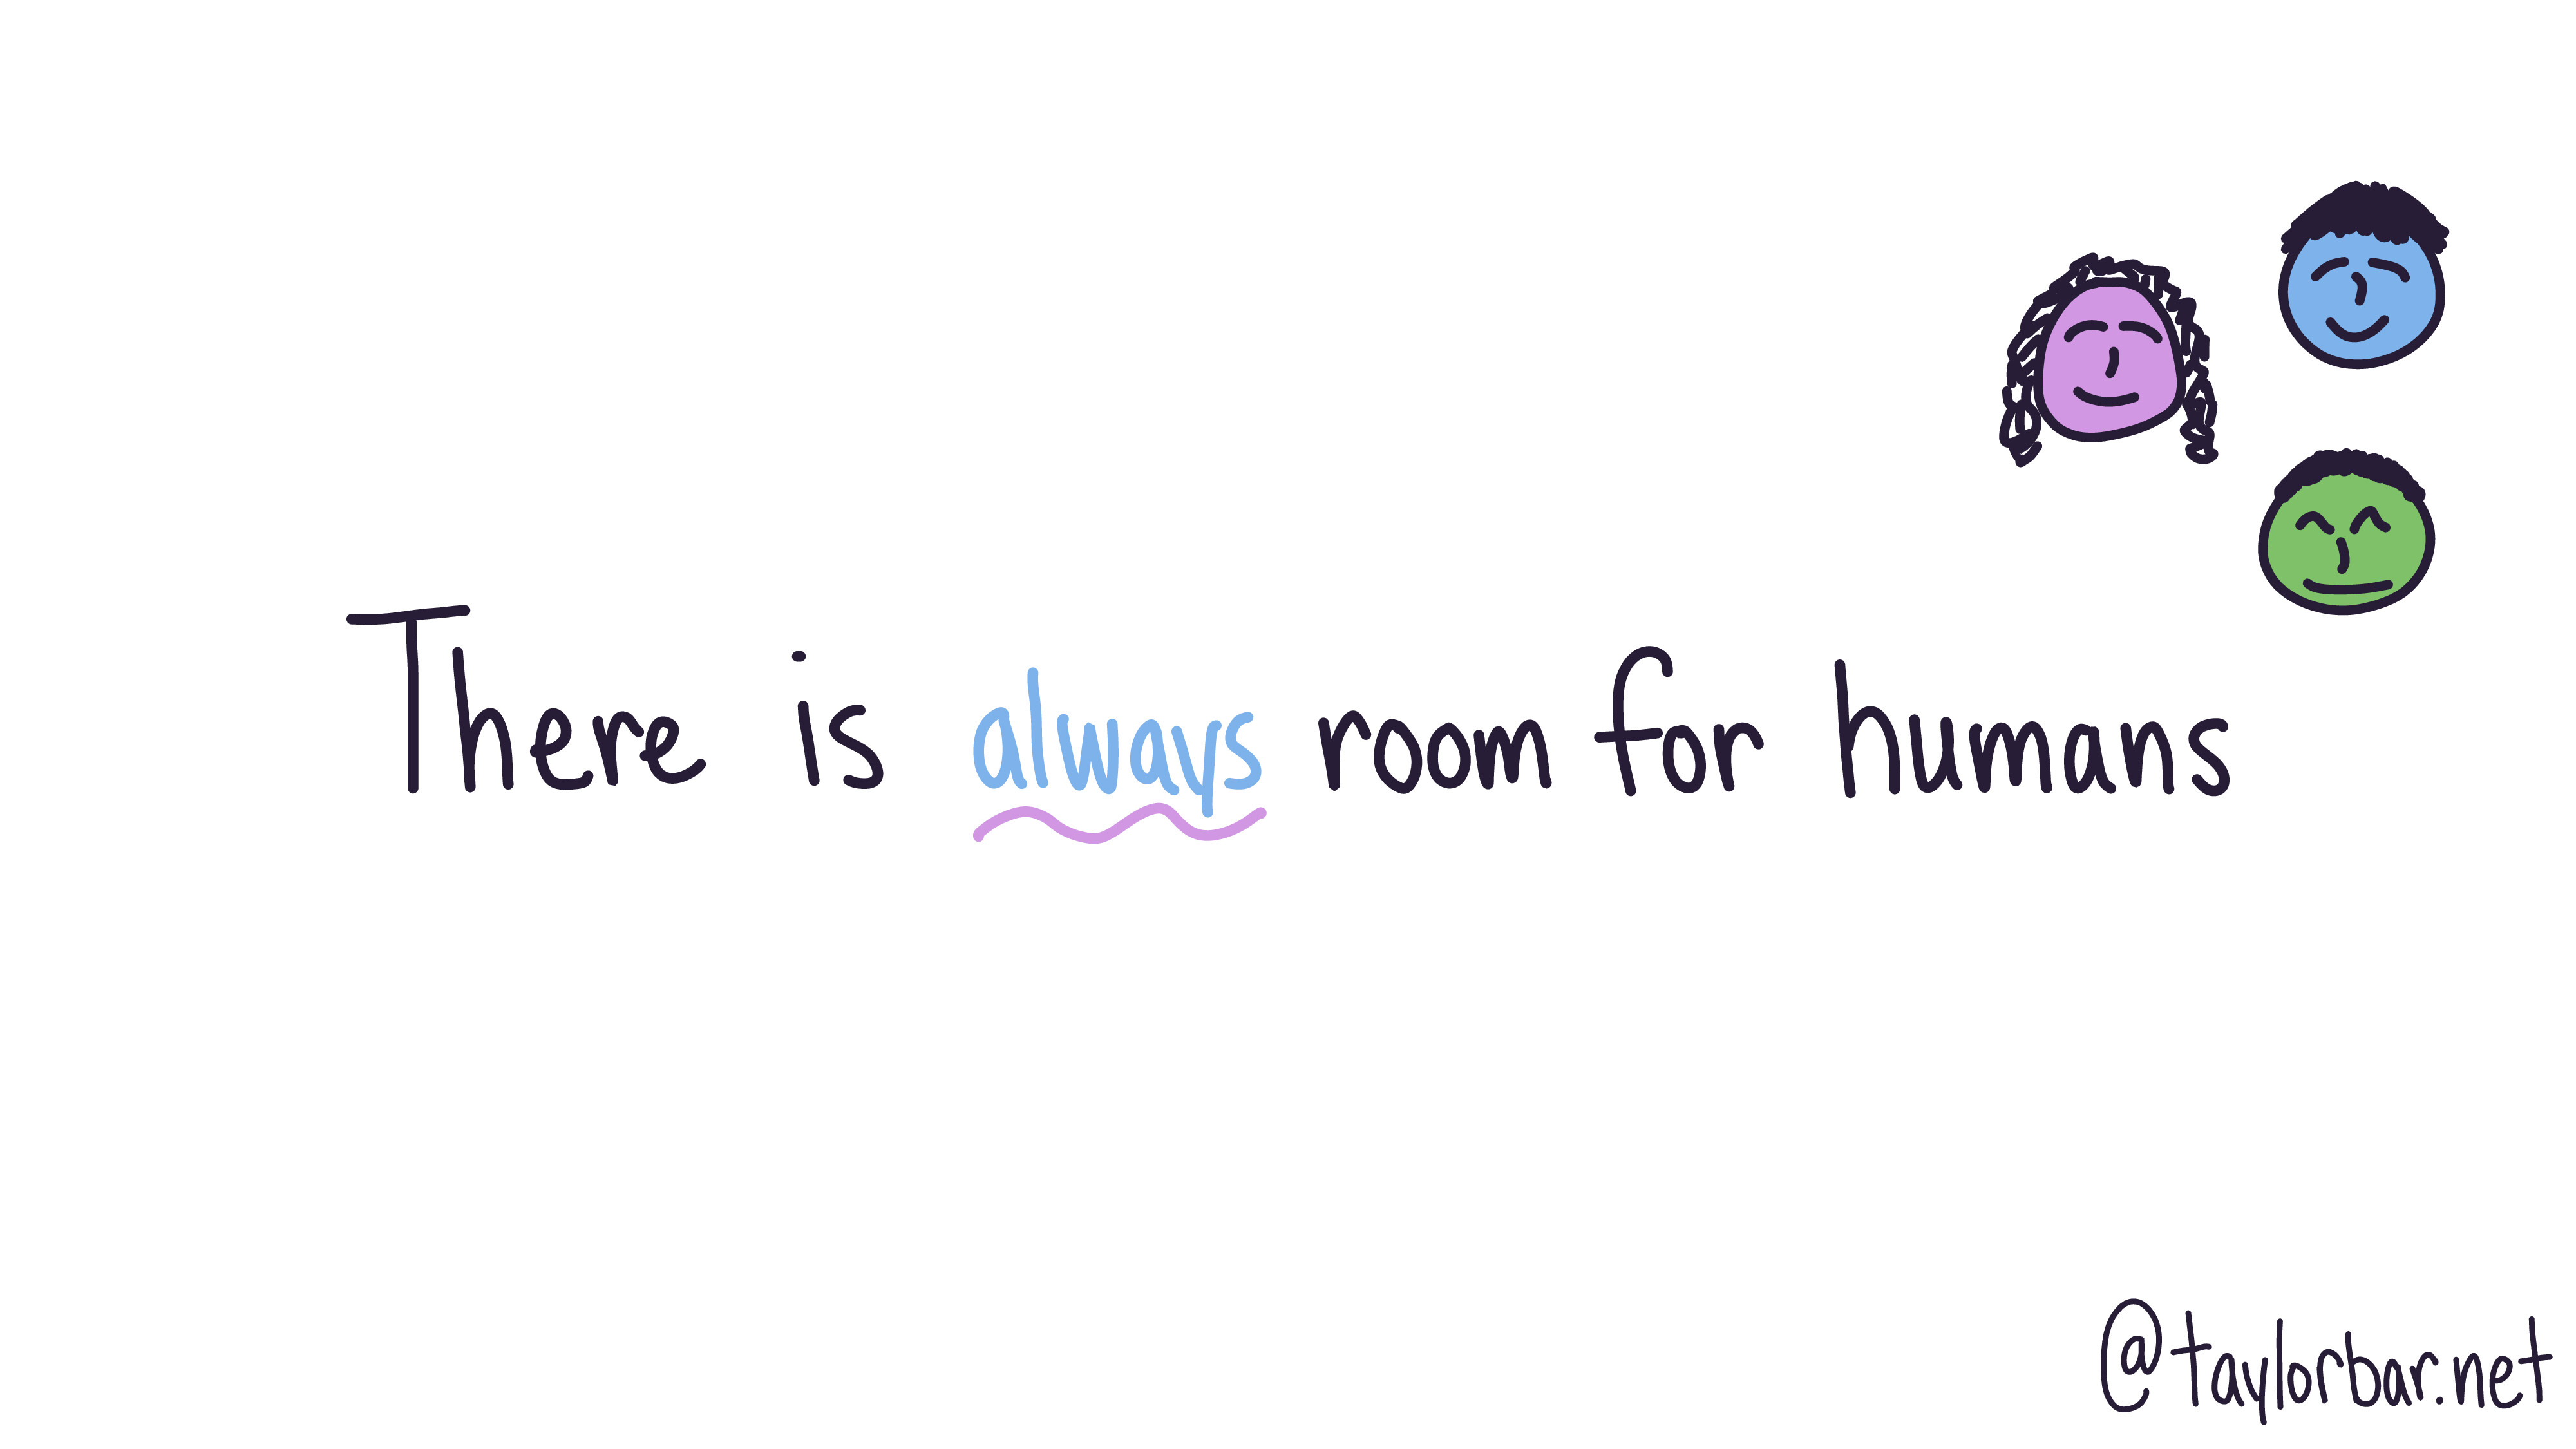 There is always room for humans
@taylorbar.net